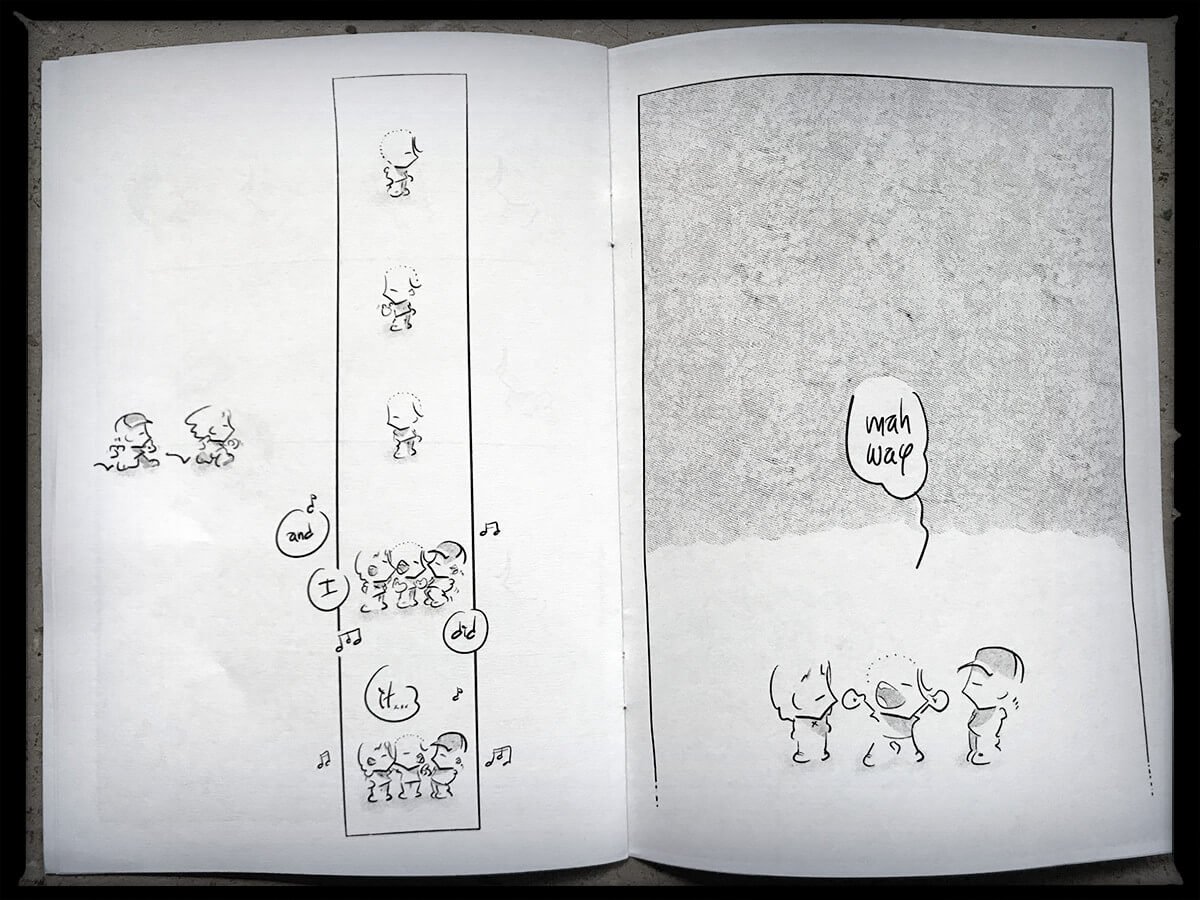 and
I
did
it...
mah
way